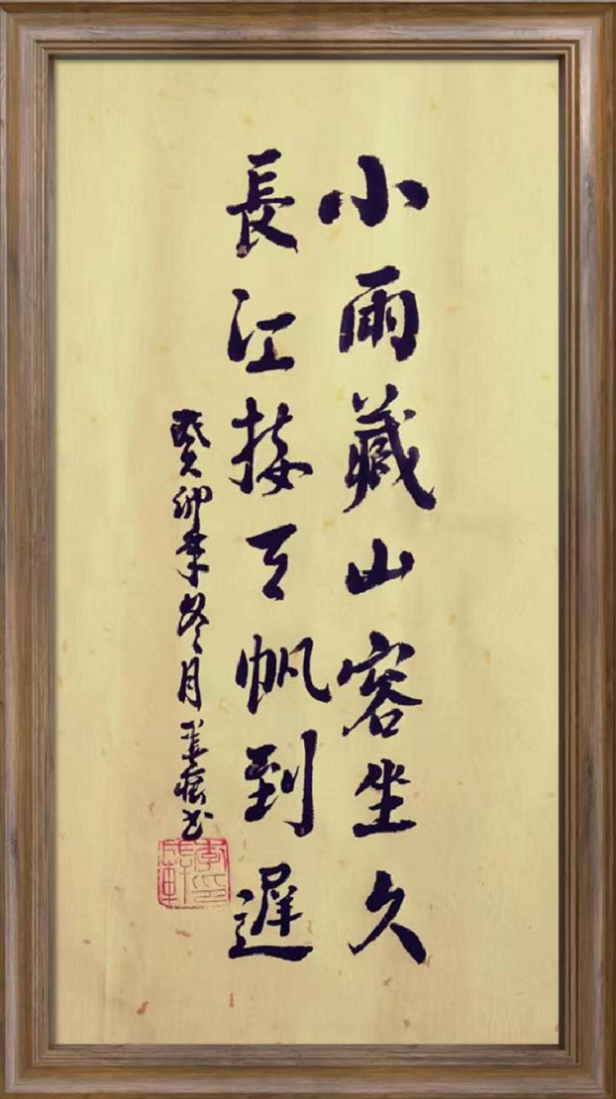 小雨藏山容坐久
長江接天帆到遲
癸卯年冬月